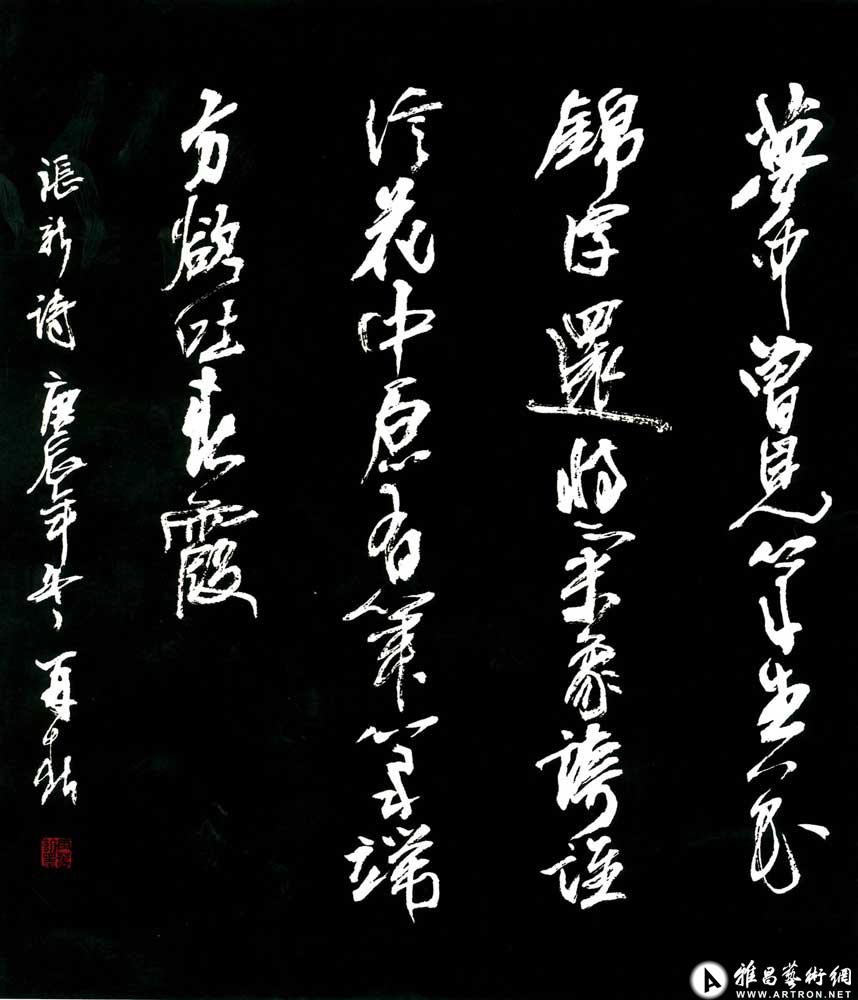 夢中曾見筆生花
錦字還將氣象誇誰
信花中原有筆端
方欲吐春霞
張新詩 庚辰年冬
雅昌藝術網
WWW.ARTRON.NET